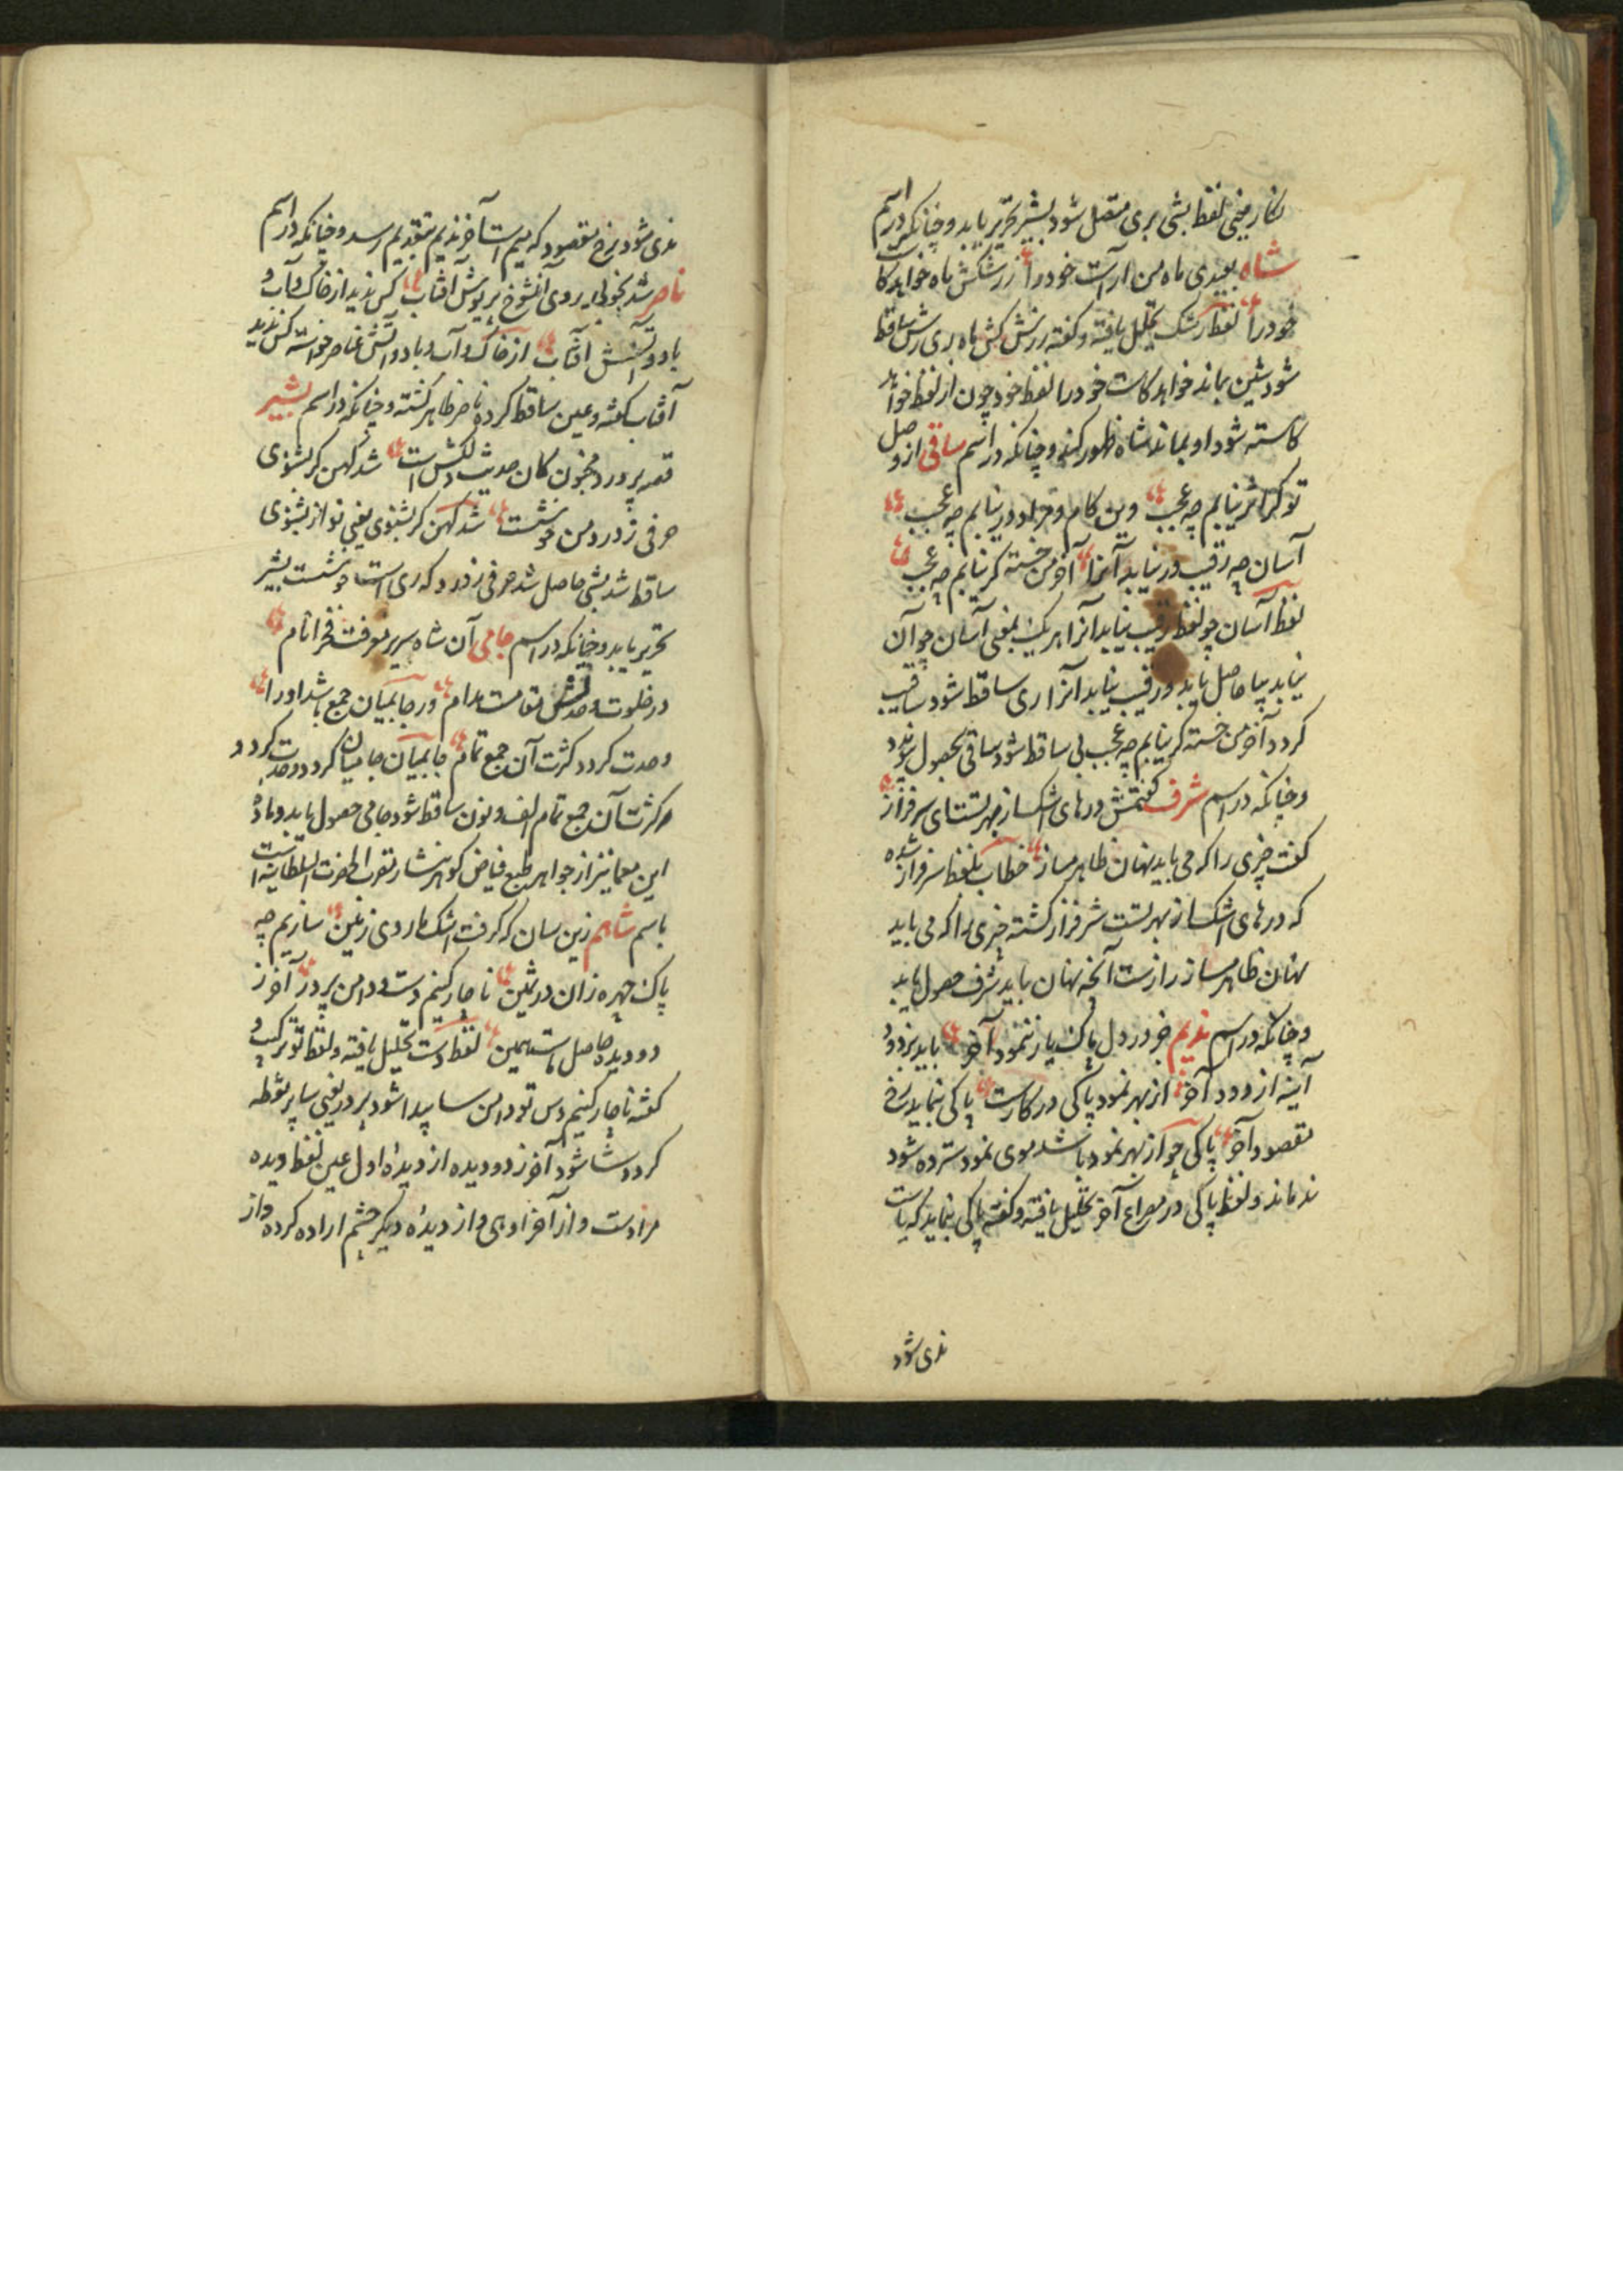 نکار یعنی لفظ بشی بری متصل شود بشیر تحریر یابد و چنانکه در اسم
شاه بعیدی ماه من آراست خود را زرشکش ماه خواهد کا
خود را لفظ رشک تحلیل یافته و کفته زرش کش ماه بری رش ساقط
شود شین بماند خواهد کاست خود را لفظ خود چون از لفظ خواهد
کاسته شود او بماند شاه ظهور کند و چنانکه در اسم ساقی از وصل
تو کر اثر نیابم چه عجب وین کام و مراد در نیابم چه عجب
آسان چه رقیب در نیابد آنرا آخر من خسته کر نیابم چه عجب
لفظ آسان چو لفظ رقیب نیابد آنرا بمعنی آسان چو آن
نیابد سا حاصل یابد و رقیب نیابد آنرا ری ساقط شود ساقیب
کردد آخر من خسته کر نیابم چه عجب بی ساقط شود ساقی بحصول
و چنانکه در اسم شرف کفتمش درهای اشک از بهر تست ای سرفراز
کفت چیزی را که می باید نهان ظاهر مساز خطاب بلفظ سرفراز شده
که درهای اشک از بهر تست شرفراز کشته چیزی را که می باید
نهان ظاهر مساز رازست آنچه نهان باید شرف حصول یابد
و چنانکه در اسم ندیم جز در دل پاک یار ننمود آخر باید بزدود
آینه از دود آخر از بهر نمود پاکی در کارست پاکی بنماید رخ
مقصود آخر پاکی چو از بهر نمود باشد موی نمود سترده شود
ند ماند و لفظ پاکی در مصراع آخر تحلیل یافته و کفته پاکی بنماید که یاست
ندی شود
ندی شود رخ مقصود که میم است آخر ندیم بتقدیم رسد و چنانکه در اسم
ناصر شد بخوبی روی آنشوخ پریوش آفتاب کس ندید از خاک و آب و
باد و آتش آفتاب از خاک و آب و باد و آتش عناصر خواسته کس ندید
آفتاب کفته و عین ساقط کرده ناصر ظاهر کشته و چنانکه در اسم بشیر
قصه پرورد مجنون کان حدیث دلکش است شد کهن کر بشنوی
حرفی ز درد من خوشست شد کهن کر بشنوی یعنی نو از بشنوی
ساقط شد بشی حاصل شد حرفی ز درد که ری است خوشست بشیر
تحریر یابد و چنانکه در اسم جامی آن شاه سریر معرفت فخر انام
در خلوت وحدتش مقامست مدام ور جابمیان جمع باشد او را
وحدت کردد کثرت آن جمع تمام جابمیان جامیان کردد وحدت کردد
کثرت آن جمع تمام الف و نون ساقط شود جامی حصول یابد و ماده
این معما نیز از جواهر طبع فیاض کوهر نثار مقرب الحضرت السلطانیه است
باسم شاهم زین سان که کرفت اشک ما روی زمین سازیم چه
پاک چهره زان در ثمین ناچار کنیم دست و دامن پر در آخر ز
دو دیده حاصل ماست همین لفظ دست تحلیل یافته و لفظ تو ترکیب
کفته ناچار کنیم دس تو دامن سا پیدا شود پر در یعنی سا پر نقطه
کردد شا شود آخر ز دو دیده از دیدهٔ اول عین لفظ دیده
مرادست و از آخر او هی و از دیدهٔ دیکر چشم اراده کرده و از